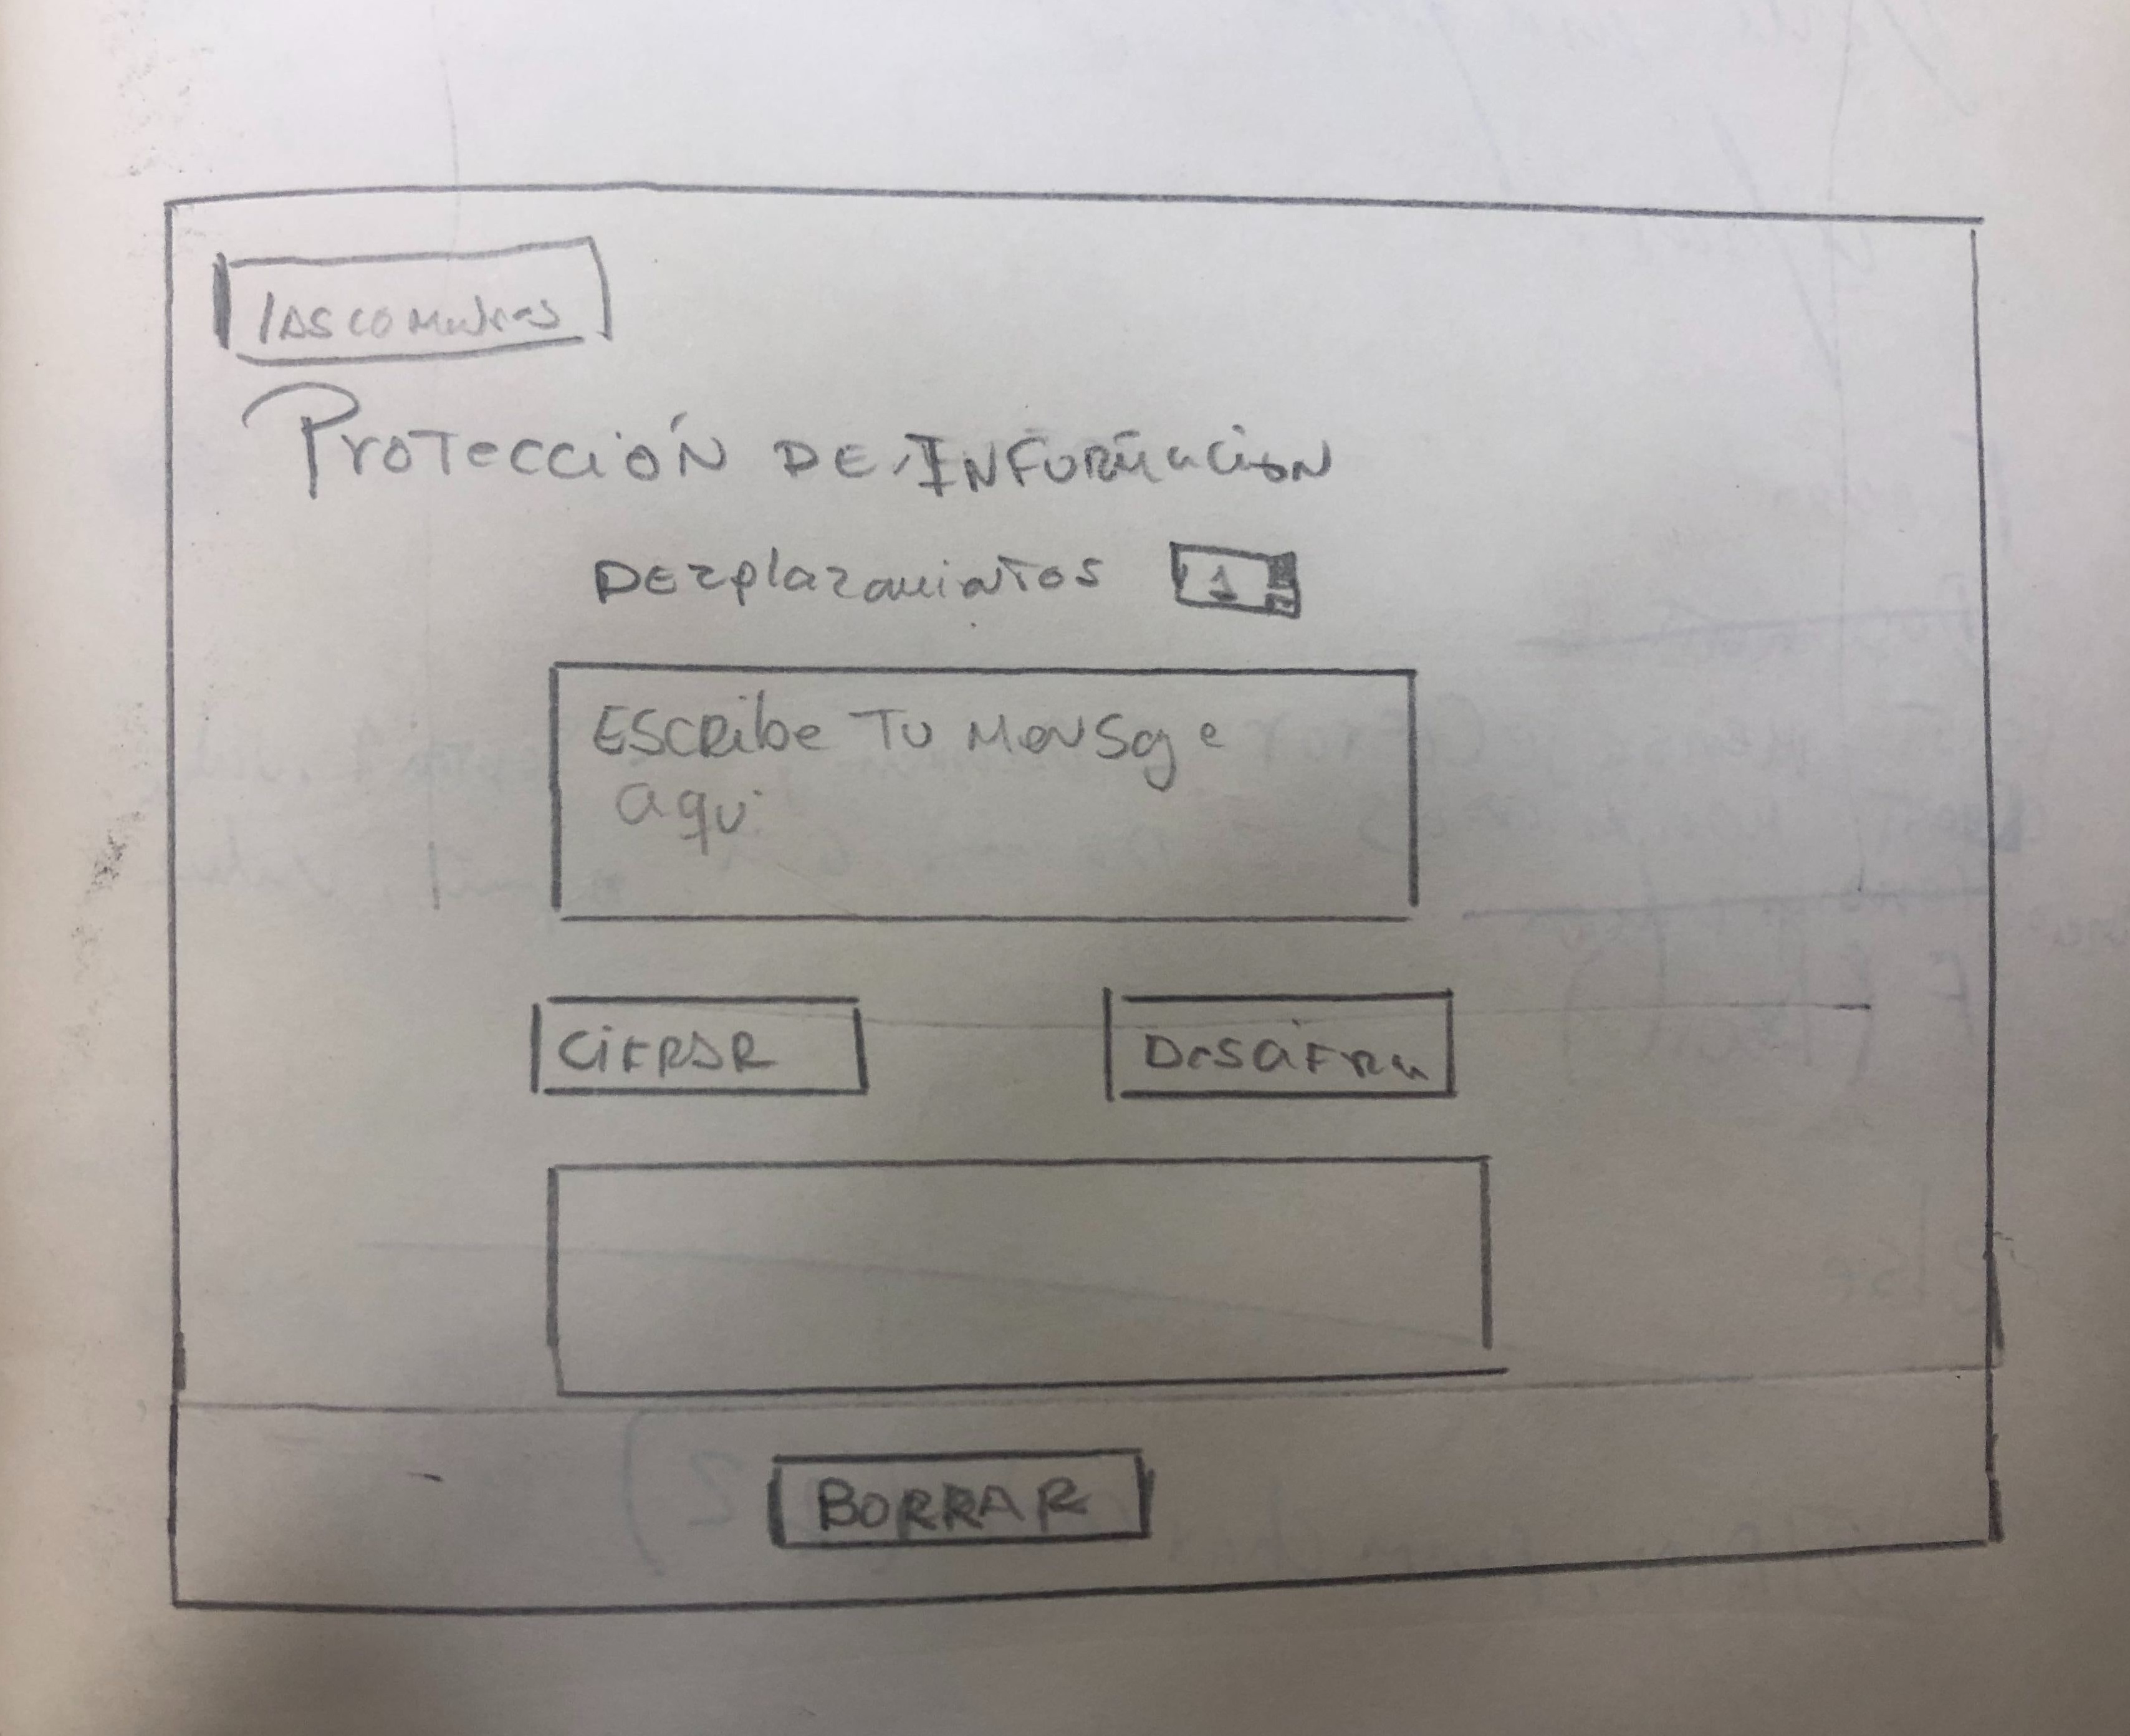 Protección DE INFORMACION
DEzplazamientos 1
ESCRibe Tu Mensaje
aqui
CiFRAR
DesciFra
BORRAR